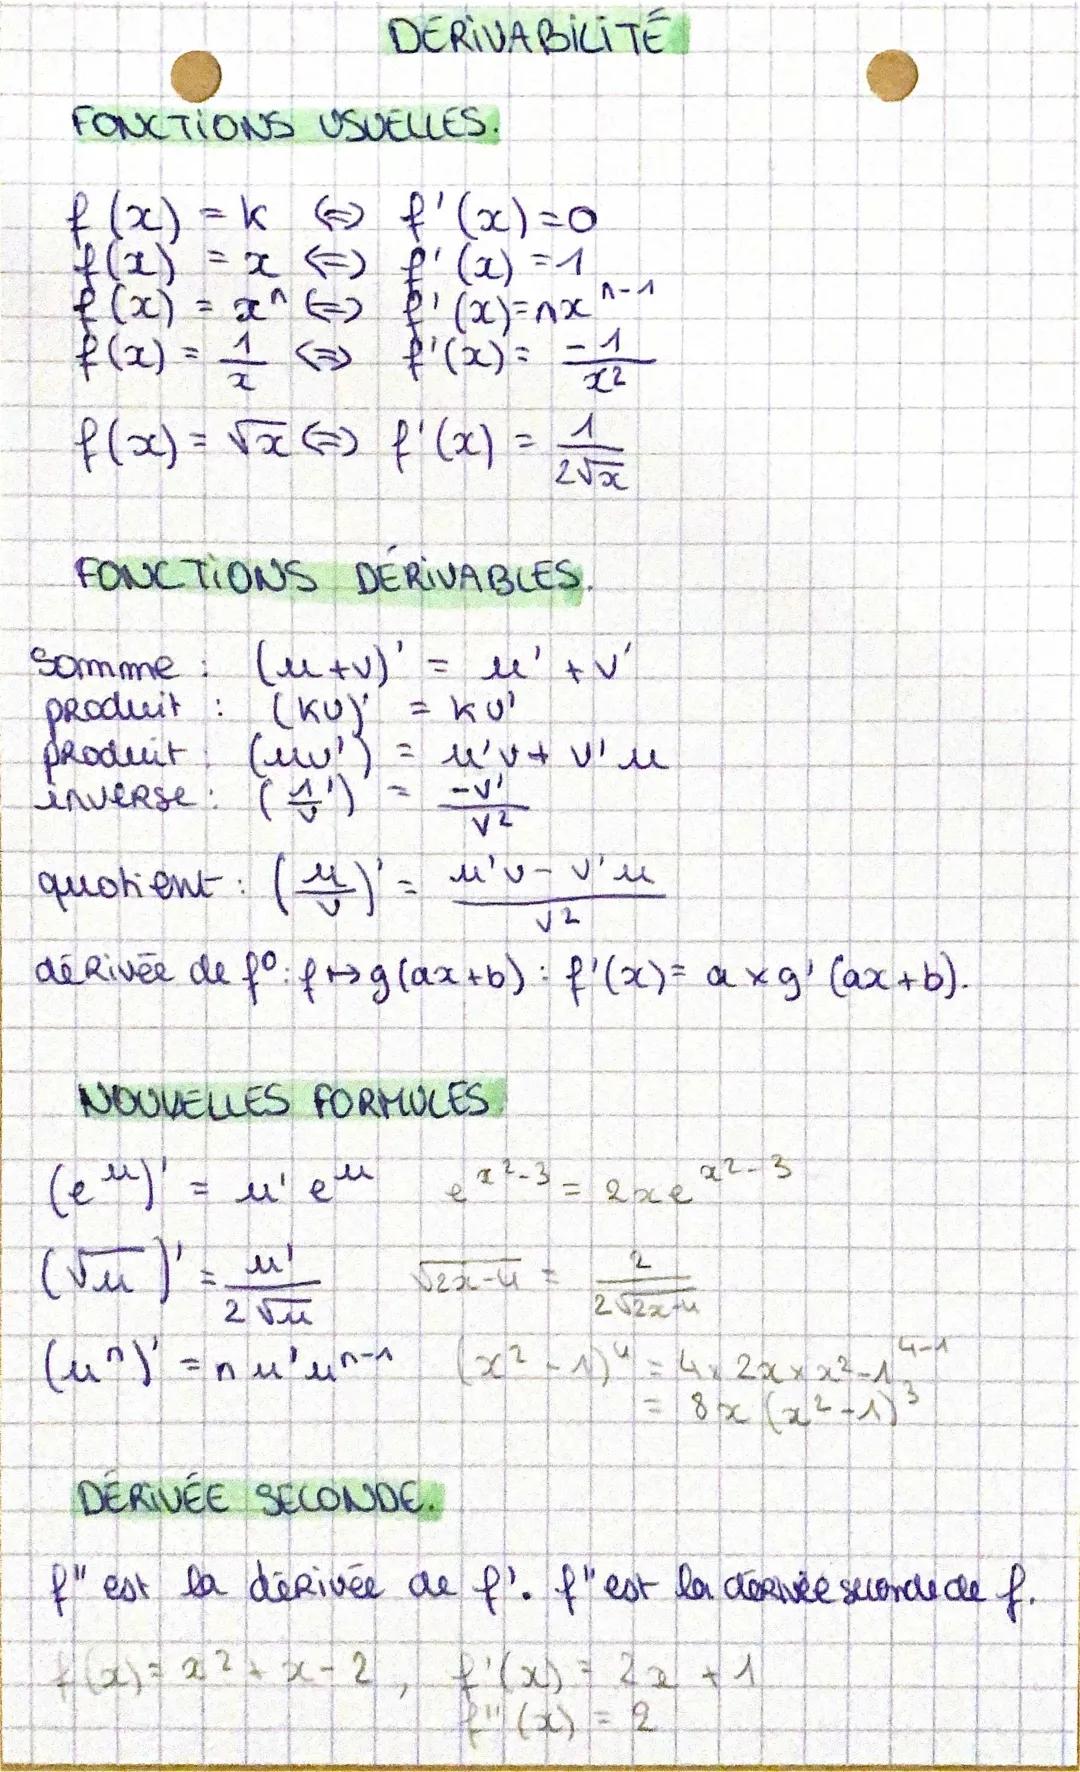 DÉRIVABILITÉ
FONCTIONS USUELLES.
f(x) = k <=> f'(x)=0
f(x) = x <=> f'(x) = 1
f(x) = xⁿ <=> f'(x)=nxⁿ⁻¹
f(x) = 1/x <=> f'(x) = -1/x²
f(x) = √x <=> f'(x) = 1/(2√x)
FONCTIONS DÉRIVABLES.
somme : (u+v)' = u' + v'
produit : (kv)' = kv'
produit : (uv') = u'v + v'u
inverse : (1/v') = -v'/v²
quotient : (u/v)' = (u'v - v'u)/v²
dérivée de f°: f↦g(ax+b) : f'(x)= a×g'(ax+b).
NOUVELLES FORMULES
(eᵘ)' = u'eᵘ e^(x²-3) = 2xe^(x²-3)
(√u)' = u'/(2√u) √(2x-4) = 2/(2√(2x-4))
(uⁿ)' = n u'uⁿ⁻¹ (x²-1)⁴ = 4×2x×x²-1⁴⁻¹
= 8x(x²-1)³
DÉRIVÉE SECONDE.
f" est la dérivée de f'. f" est la dérivée seconde de f.
f(x) = x²+x-2, f'(x) = 2x+1
f"(x) = 2